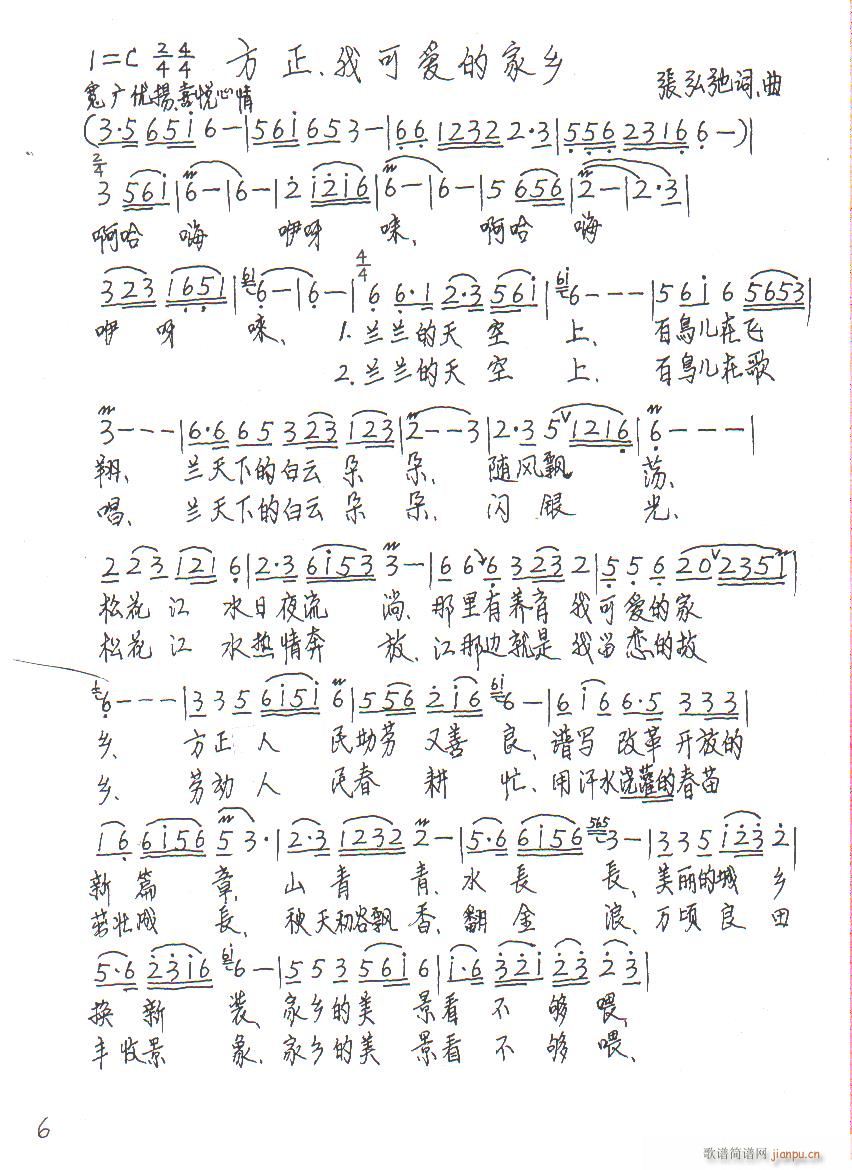 1=C 2/4 4/4 方正、我可爱的家乡
宽广优揚、喜悦心情 張弘弛词、曲
(3·5 65i 6-|56i 653-|66 1232 2·3|556 2316 6-)|
2/4
3 56i|6-|6-|2 i2i6|6-|6-|5 656|2-|2·3|
啊哈 嗨 咿呀 唻、 啊哈 嗨
323 1651|6-|6-|4/4 6 6·1 2·3 56i|6---|56i6 5653|
咿呀 唻、 1.兰兰的天空上、 百鳥儿在飞
2.兰兰的天空上、 百鳥儿在歌
3---|6·6 65 323 123|2--3|2·3 5 1216|6---|
翔、 兰天下的白云朵朵、 随风飘 荡、
唱、 兰天下的白云朵朵、 闪银 光、
2 23 121 6|2·3 6i53 3-|6 6 6 323 2|5 5 6 20 235i|
松花江 水日夜流 淌、那里有养育 我可爱的家
松花江 水热情奔 放、江那边就是 我留恋的故
6---|335 6i5i 6|556 2i6 6-|6i6 6·5 333|
乡、 方正人 民劫劳又善良、谱写改革开放的
乡、 劳动人 民春耕忙、用汗水浇灌的春苗
i6 6i56 5 3·|2·3 1232 2-|5·6 6i56 3-|335 i23 2|
新篇章、山青青、水長長、美丽的城乡
茁壮成長、秧天初谷飘香、翻金浪、万顷良田
5·6 23i6 6-|553 56i 6|i·6 32i 23 23|
换新装、家乡的美景看不够喂、
丰收景象、家乡的美景看不够喂、
6
歌谱简谱网 jianpu.cn